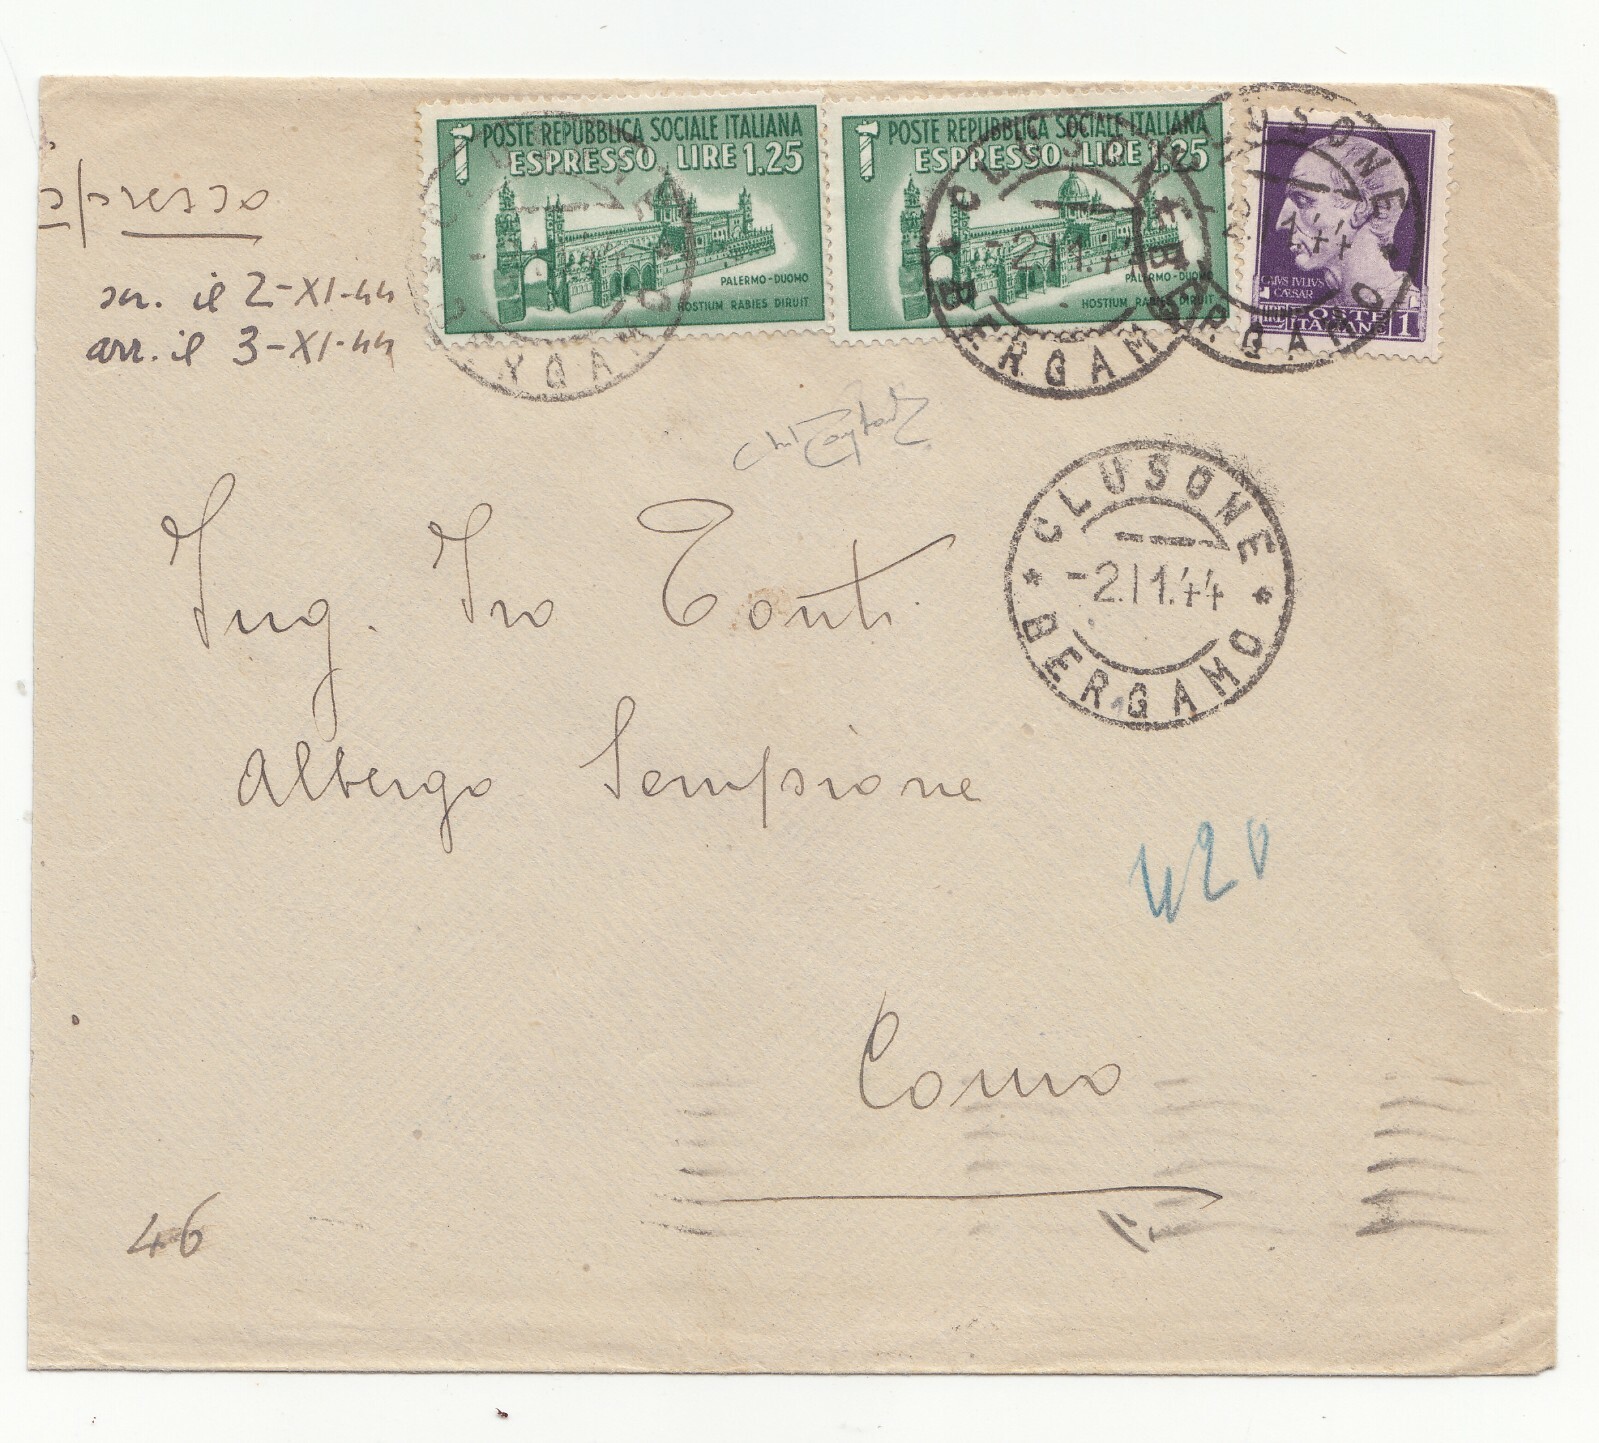 POSTE REPUBBLICA SOCIALE ITALIANA
ESPRESSO LIRE 1.25
PALERMO-DUOMO
HOSTIUM RABIES DIRUIT
POSTE REPUBBLICA SOCIALE ITALIANA
ESPRESSO LIRE 1.25
PALERMO-DUOMO
HOSTIUM RABIES DIRUIT
CAIVS IVLIVS
CAESAR
LIRE POSTE ITALIANE 1
CLUSONE
-2.11.44
BERGAMO
CLUSONE
BERGAMO
espresso
scr. il 2-XI-44
arr. il 3-XI-44
CLUSONE
-2.11.44
BERGAMO
Ing. Ivo Tonti
Albergo Sempione
420
Como
46